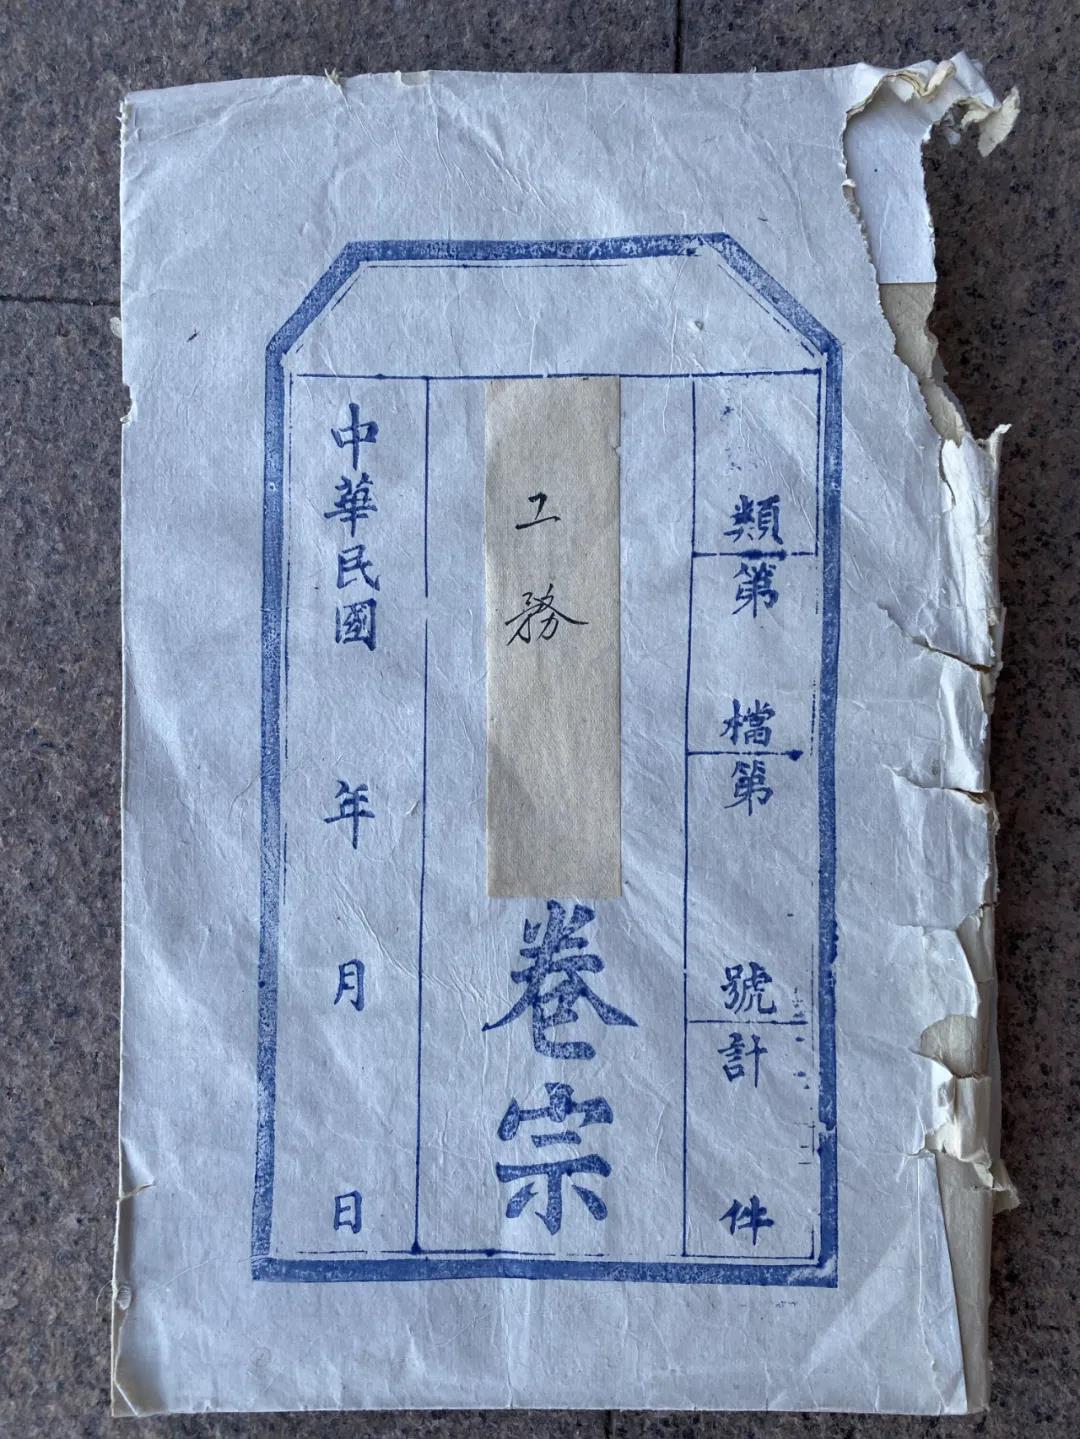 類
第 檔
第 號
計 件
工務
卷宗
中華民國 年 月 日